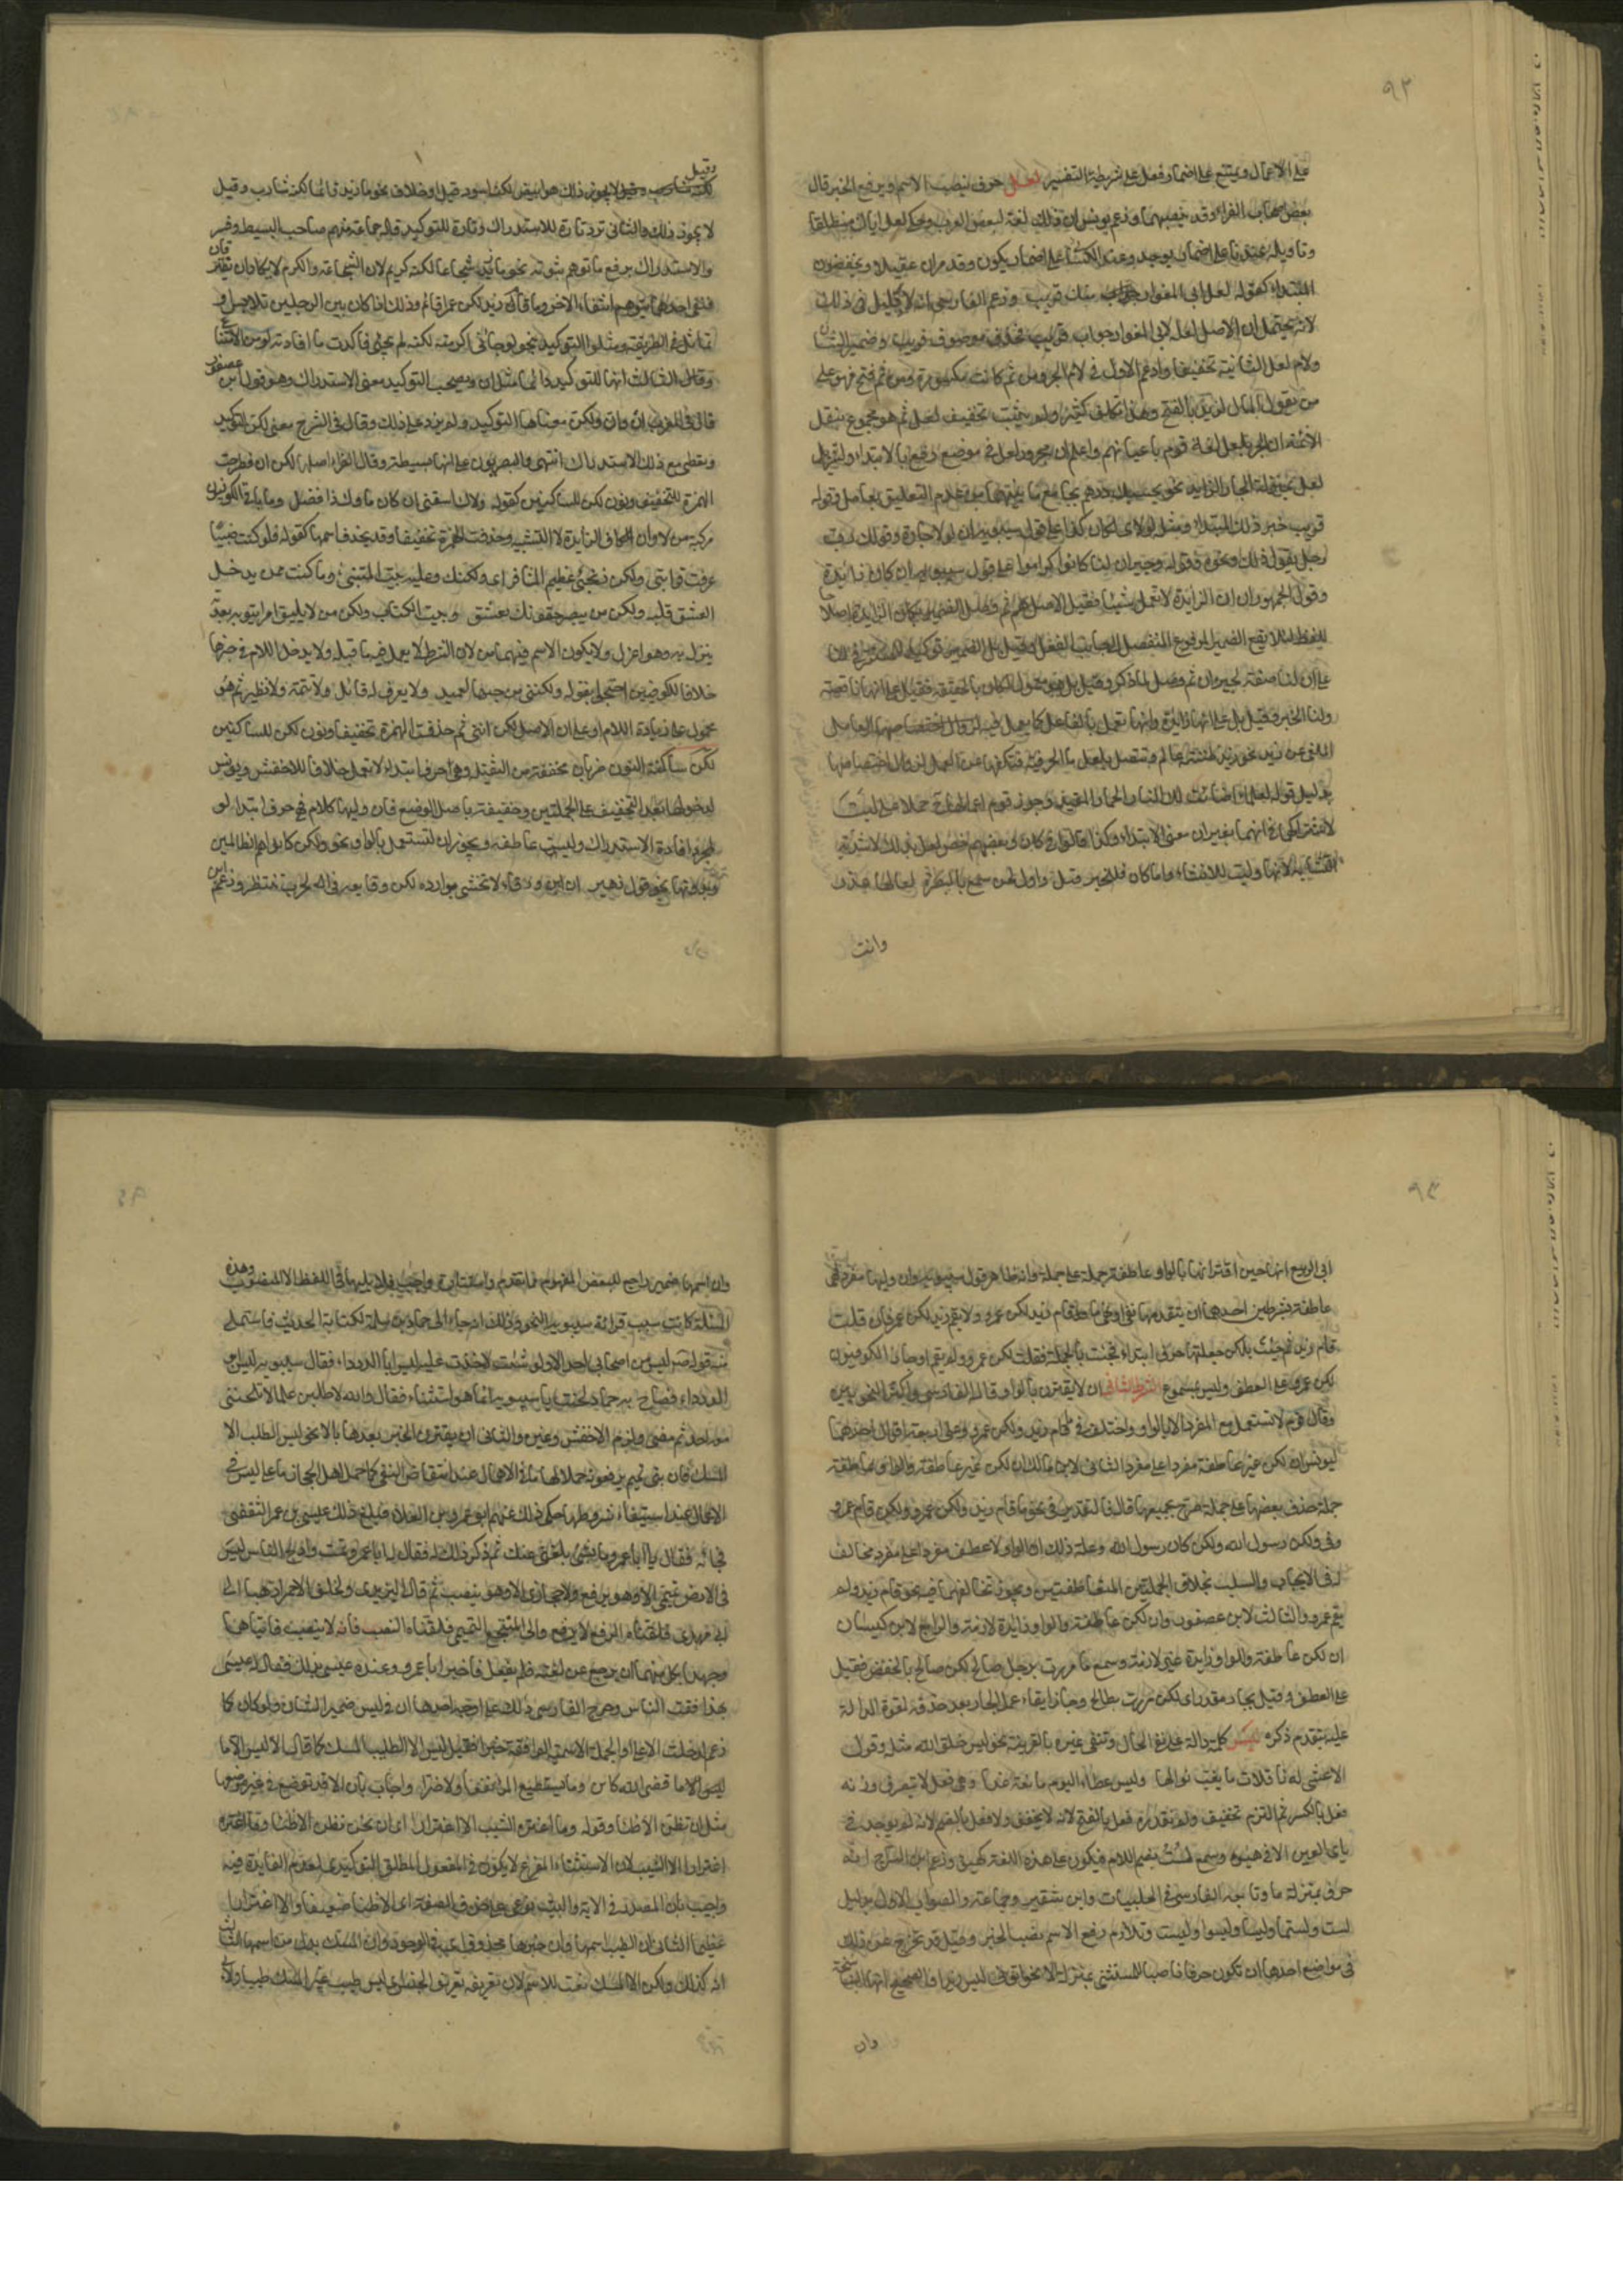 ٩٢
على الاعمال ويمتنع على اضمار فعل على شريطة التفسير لعل حرف ينصب الاسم ويرفع الخبر قال
بعض اصحاب الفراء وقد ينصبهما وزعم يونس ان ذلك لغة لبعض العرب وحكى لعل اباك منطلقا
وتاويله عندنا على اضمار يوجد وعند الكسائي على اضمار يكون وقد مر ان عقيلا يخفضون
المبتدا كقوله لعل ابي المغوار منك قريب وزعم الفارسي انه لا دليل في ذلك
لانه يحتمل ان الاصل لعله لابي المغوار جواب قريب فحذف موصوف قريب وضمير الشان
ولام لعل الثانية تخفيفا وادغم الاولى في لام الجر ومن ثم كانت مكسورة ومن فتح فهو على
من يقول المال لزيد بالفتح وهذا تكلف كثير ولم يثبت تخفيف لعل ثم هو محجوج بنقل
الائمة ان الجر بلعل لغة قوم باعيانهم واعلم ان مجرور لعل في موضع رفع بالابتداء لتنزيل
لعل منزلة الجار الزايد نحو بحسبك درهم بجامع ما بينهما من عدم التعليق بعامل وقوله
قريب خبر ذلك المبتدا ومثله لولاي لكان كذا على قول سيبويه ان لولا جارة وقولك رب
رجل يقول ذلك ونحوه وقوله وجيران لنا كانوا كرام على قول سيبويه ان كان زائدة
وقول الجمهور ان الزايدة لا تعمل شيئا فقيل الاصل هم ثم وصل الضمير بكان الزايدة اصلاحا
للفظ لئلا يقع الضمير المرفوع المنفصل الى جانب الفعل وقيل بل الضمير توكيد للمستتر في لنا
على ان لنا صفة لجيران ثم وصل لما ذكر وقيل بل هو معمول لكان بالحقيقة فقيل على انها ناقصة
ولنا الخبر وقيل بل على انها زائدة وانها تعمل في الفاعل كما يعمل فيه العامل
الملغى نحو زيد ظننت عالم وتتصل بلعل ما الحرفية فتكفها عن العمل لزوال اختصاصها
بدليل قوله لعلما اضاءت لك النار الحمار المقيدا وجوز قوم اعمالها حملا على ليت
لاشتراكهما في انهما يغيران معنى الابتداء وكذا قالوا في كان وبعضهم خص لعل بذلك لاشدية
التشابه لانها وليت للانشاء واما كان فللخبر قيل واول لحن سمع بالبصرة لعل لها عذر
وانت
وقيل
لا يجوز ذلك والثاني ترد تارة للاستدراك وتارة للتوكيد قاله جماعة منهم صاحب البسيط وفسر
والاستدراك برفع ما توهم ثبوته نحو ما زيد شجاعا لكنه كريم لان الشجاعة والكرم لا يكادان يفترقان
فنفي احدهما يوهم انتفاء الاخر وما قام زيد لكن عمرا قائم وذلك اذا كان بين الرجلين تلابس او
تماثل في الطريقة ومثلوا التوكيد بنحو لو جاءني اكرمته لكنه لم يجئ فاكدت ما افادته لو من الامتناع
وقال الثالث انها للتوكيد دائما مثل ان ويصحب التوكيد معنى الاستدراك وهو قول ابن عصفور
قال في المقرب ان وان ولكن ومعناها التوكيد ولم يزد على ذلك وقال في الشرح معنى لكن التوكيد
وتعطي مع ذلك الاستدراك انتهى والبصريون على انها بسيطة وقال الفراء اصلها لكن ان فطرحت
الهمزة للتخفيف ونون لكن للساكنين كقوله ولاك اسقني ان كان ماؤك ذا فضل وقال باقي الكوفيين
مركبة من لا وان والكاف الزايدة لا التشبيه وحذفت الهمزة تخفيفا وقد يحذف اسمها كقوله فلو كنت ضبيا
عرفت قرابتي ولكن زنجي عظيم المشافر اي ولكنك وعليه بيت المتنبي وما كنت ممن يدخل
العشق قلبه ولكن من يبصر جفونك يعشق وبيت الكتاب ولكن من لا يلق امرا ينوبه بعدته
ينزل به وهو اعزل ولا يكون الاسم فيهما من لان الشرط لا يعمل فيه ما قبله ولا يدخل اللام في خبرها
خلافا للكوفيين احتجوا بقوله ولكنني من حبها لعميد ولا يعرف له قائل ولا تتمة ولا نظير ثم هو
محمول على زيادة اللام او على ان الاصل لكن انني ثم حذفت الهمزة تخفيفا ونون لكن للساكنين
لكن ساكنة النون ضربان مخففة من الثقيلة وهي حرف ابتداء لا تعمل خلافا للاخفش ويونس
لدخولها بعد التخفيف على الجملتين وخفيفة باصل الوضع فان وليها كلام فهي حرف ابتداء
لمجرد افادة الاستدراك وليست عاطفة ويجوز ان تستعمل بالواو نحو ولكن كانوا هم الظالمين
وبدونها نحو قول زهير ان ابن ورقاء لا تخشى بوادره لكن وقايعه في الحرب تنتظر وزعم ابن
٩٣
ابي الربيع انها حين اقترانها بالواو عاطفة جملة على جملة وانه ظاهر قول سيبويه وان وليها مفرد فهي
عاطفة بشرطين احدهما ان يتقدمها نفي او نهي نحو ما قام زيد لكن عمرو ولا يقم زيد لكن عمرو فان قلت
قام زيد ثم جئت بلكن جعلتها حرف ابتداء فجئت بالجملة فقلت لكن عمرو لم يقم واجاز الكوفيون
لكن عمرو على العطف وليس بمسموع الشرط الثاني ان لا يقترن بالواو قاله الفارسي واكثر النحويين
وقال قوم لا تستعمل مع المفرد الا بالواو واختلف في نحو ما قام زيد ولكن عمرو على اربعة اقوال احدها
ليونس ان لكن غير عاطفة والواو عاطفة مفردا على مفرد الثاني لابن مالك ان لكن غير عاطفة والواو عاطفة
جملة حذف بعضها على جملة صرح بجميعها قال فالتقدير في نحو ما قام زيد ولكن عمرو ولكن قام عمرو
وفي ولكن رسول الله ولكن كان رسول الله وعلة ذلك ان الواو لا تعطف مفردا على مفرد مخالف
له في الايجاب والسلب بخلاف الجملتين المتعاطفتين فيجوز تخالفهما فيه نحو قام زيد ولم
يقم عمرو والثالث لابن عصفور ان لكن عاطفة والواو زائدة لازمة والرابع لابن كيسان
ان لكن عاطفة والواو زايدة غير لازمة وسمع ما مررت برجل صالح لكن صالح بالخفض فقيل
على العطف وقيل بجار مقدر اي لكن مررت بطالح وجاز ابقاء عمل الجار بعد حذفه لقوة الدلالة
عليه بتقدم ذكره ليس كلمة دالة على نفي الحال وتنفي غيره بالقرينة نحو ليس خلق الله مثله وقول
الاعشى له نافلات ما يغب نوالها وليس عطاء اليوم مانعه غدا وهي فعل لا يتصرف وزنه
فعل بالكسر ثم التزم تخفيفه ولم نقدره فعل بالفتح لانه لا يخفف ولا فعل بالضم لانه لم يوجد في
يائي العين الا في هيؤ وسمع لست بضم اللام فيكون على هذه اللغة كهيؤ وزعم ابن السراج انه
حرف بمنزلة ما وتابعه الفارسي في الحلبيات وابن شقير وجماعة والصواب الاول بدليل
لست ولستما وليسا وليسوا وليست وتلازم رفع الاسم ونصب الخبر وقيل قد تخرج عن ذلك
في مواضع احدها ان تكون حرفا ناصبا للمستثنى بمنزلة الا نحو اتوني ليس زيدا والصحيح انها الناسخة
وان
وان اسمها ضمير راجع للبعض المفهوم مما تقدم واستتاره واجب فلا يليها في اللفظ الا المنصوب وهذه
المسئلة كانت سبب قراءة سيبويه النحو وذلك انه جاء الى حماد بن سلمة لكتابة الحديث فاستملى
منه قوله ليس من اصحابي احد الا ولو شئت لاخذت عليه ليس ابا الدرداء فقال سيبويه ليس ابو
الدرداء فصاح به حماد لحنت يا سيبويه انما هو استثناء فقال والله لاطلبن علما لا تلحنني
معه احد ثم مضى ولزم الاخفش وغيره والثاني ان يقترن الخبر بعدها بالا نحو ليس الطيب الا
المسك فان بني تميم يرفعونه حملا لها على ما في الاهمال عند انتقاض النفي كما حمل اهل الحجاز ما على ليس في
الاعمال عند استيفاء شروطها حكى ذلك عنهم ابو عمرو بن العلاء فبلغ ذلك عيسى بن عمر الثقفي
فجاءه فقال يا ابا عمرو ما شيء بلغني عنك ثم ذكر ذلك له فقال له ابا عمرو نمت وادلج الناس ليس
في الارض تميمي الا وهو يرفع ولا حجازي الا وهو ينصب ثم قال لليزيدي ولخلف الاحمر اذهبا الى
ابي مهدي فلقناه الرفع فانه لا يرفع والى المنتجع التميمي فلقناه النصب فانه لا ينصب فاتياهما
وجهدا بكل منهما ان يرجع عن لغته فلم يفعل فاخبرا ابا عمرو وعنده عيسى بذلك فقال له عيسى
بهذا فقت الناس وخرج الفارسي ذلك على اوجه احدها ان في ليس ضمير الشان ولو كان كما
زعم لدخلت الا على اول الجملة الاسمية الواقعة خبرا فقيل ليس الا الطيب المسك كما قال الا ليس الا ما
قضى الله كائن وما يستطيع المرء نفعا ولا ضرا واجاب بان الا قد توضع في غير موضعها
مثل ان نظن الا ظنا وقوله وما اغتره الشيب الا اغترارا اي ان نحن نظن الا ظنا وما اغتره
اغترارا الا الشيب لان الاستثناء المفرغ لا يكون في المفعول المطلق التوكيدي لعدم الفايدة فيه
واجيب بان المصدر في الاية والبيت نوعي على حذف الصفة اي الا ظنا ضعيفا والا اغترارا
عظيما الثاني ان الطيب اسمها وان خبرها محذوف اي في الوجود وان المسك بدل من اسمها الثالث
انه كذلك ولكن الا المسك نعت للاسم لان تعريفه تعريف الجنس اي ليس طيب غير المسك طيبا ولابي